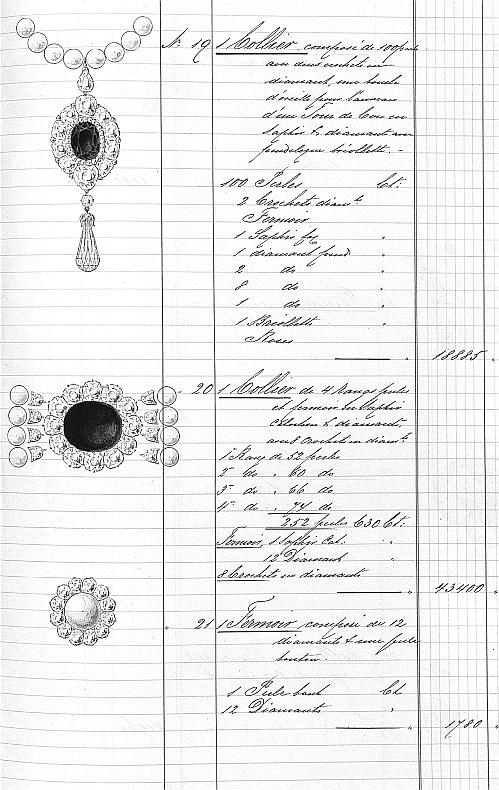 No. 19 1 Collier composé de 100 perles
avec deux crochets en
diamant, une boucle
d'oreille pour l'anneau
d'un Tour de Cou en
Saphir & diamant avec
pendeloque briollette. -
100 Perles Ct.
2 Crochets diamts
Fermoir
1 Saphir "
1 diamant fond "
2 do "
8 do "
1 do "
1 Briollette "
Roses
" 18885 "
" 20 1 Collier de 4 Rangs perles
et fermoir en Saphir
cabochon & diamants,
avec 8 crochets en diamts
1 Rang de 52 perles
2e do " 60 do
3e do " 66 do
4e do " 74 do
252 perles 630 Ct:
Fermoir, 1 Saphir Cab. "
12 Diamant "
8 Crochets en diamants
" 43400 "
" 21 1 Fermoir composé de 12
diamants & une perle
bouton.
1 Perle bout Ct
12 Diamants "
" 1780 "